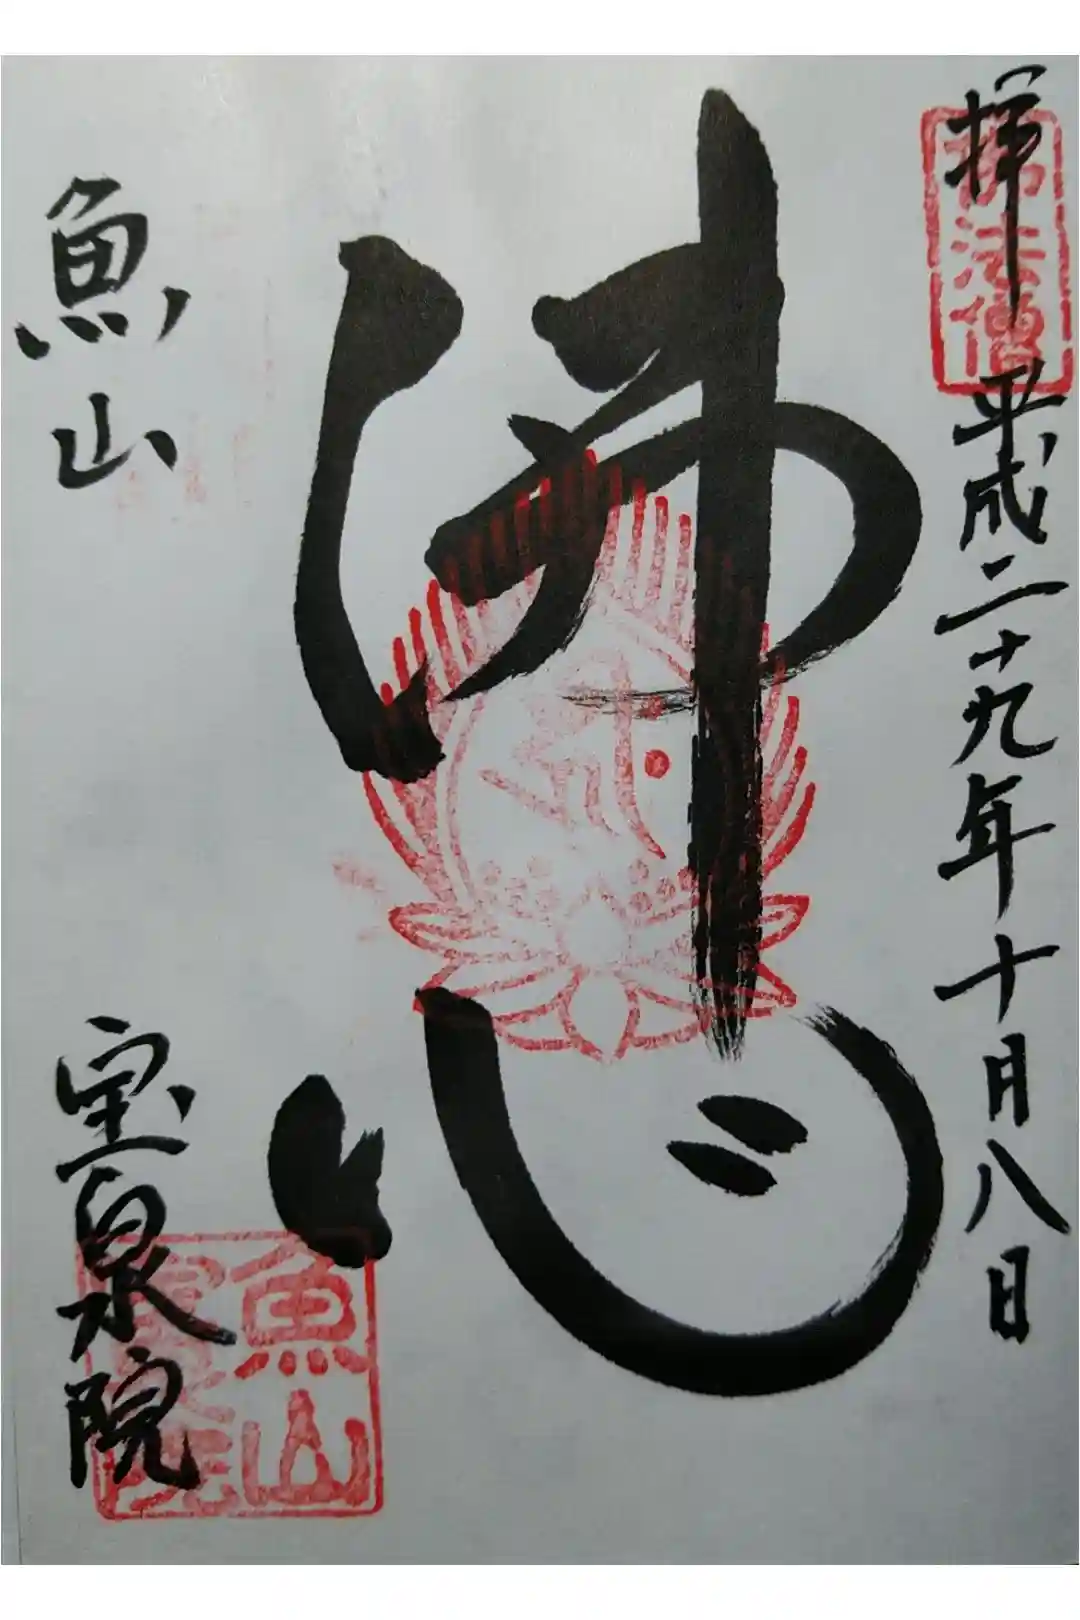 拝 平成二十九年十月八日
佛法僧
佛心
魚山 宝泉院
魚山